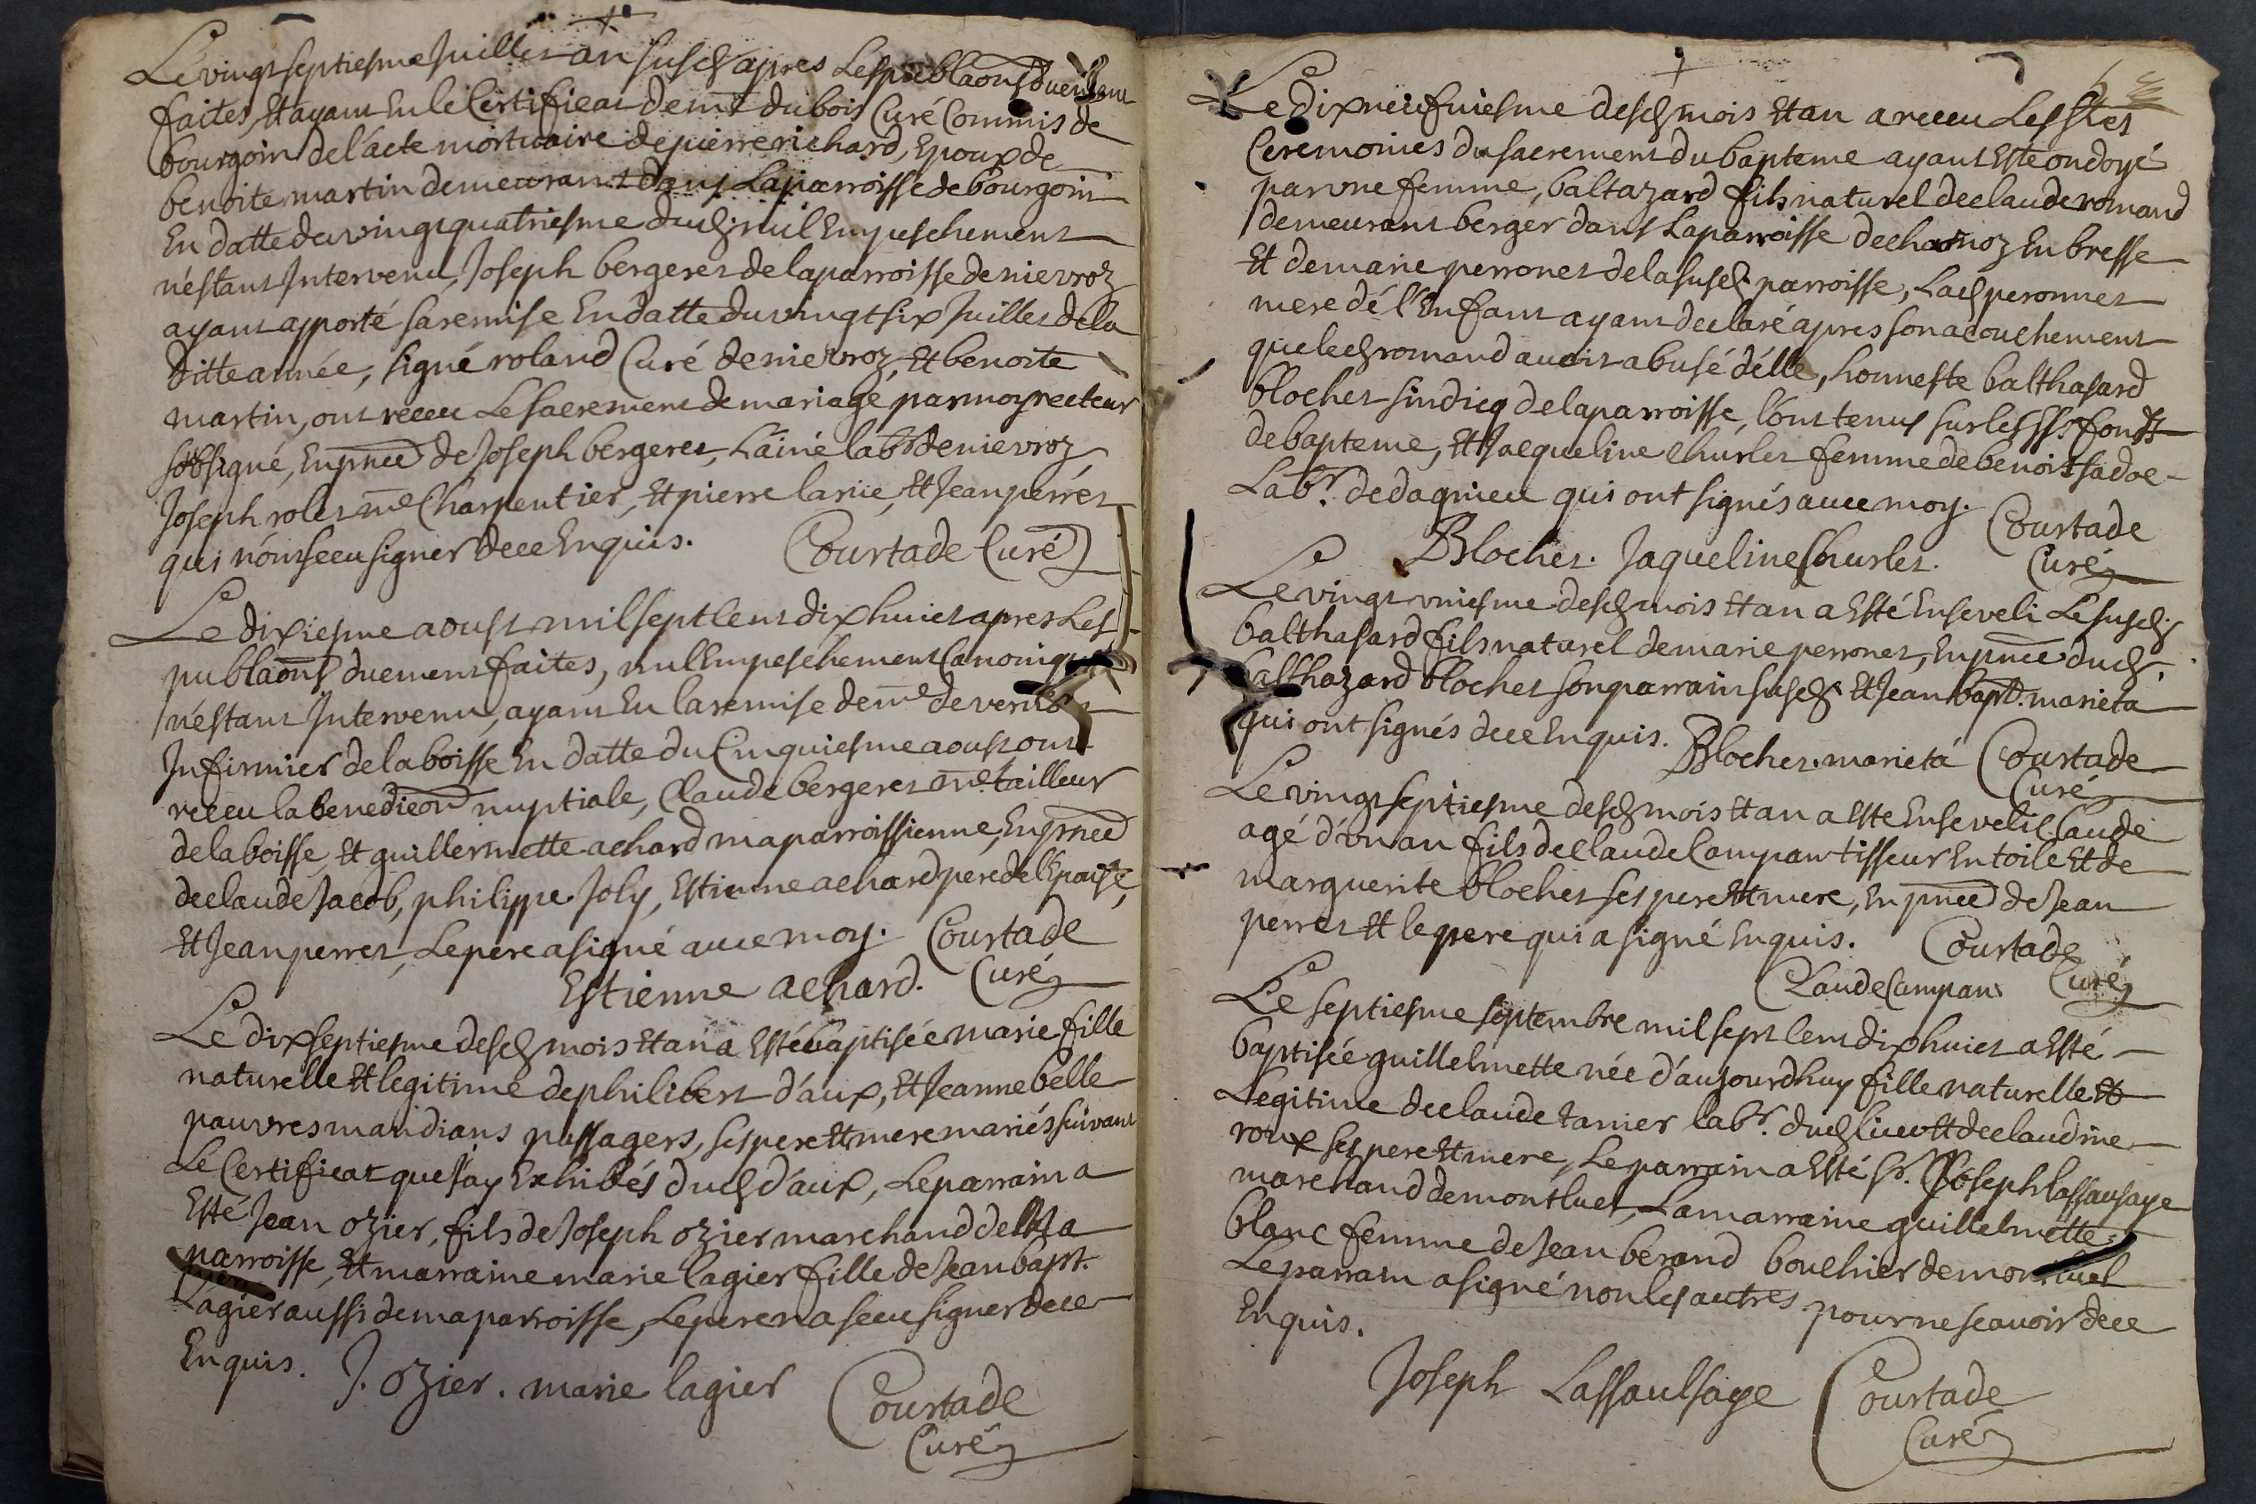 Le vingt septiesme Juillet an susd apres les publaons duement
faites, Et ayant eu le Certificat de mre dubois Curé Commis de
bourgoin de l'acte mortuaire de pierre richard, Epoux de
benoite martin demeurant dans la parroisse de bourgoin
En datte du vingt quatriesme dud; nul Empeschement
n'estant Intervenu, Joseph bergeret de la parroisse de nievroz
ayant apporté sa remise En datte du vingt six Juillet de la
ditte année, signé roland Curé de nievroz, Et benoite
martin, ont receu Le sacrement de mariage par moy recteur
soubsigné, En pnce de Joseph bergeret, L'ainé labr de nievroz
Joseph rolet me Charpentier, Et pierre larue, Et Jean perret
qui n'ont sceu signer de ce Enquis. Courtade Curé
Le dixiesme aoust mil sept Cent dix huict apres Les
publaons duement faites, nul Empeschement Canonique
n'estant Intervenu, ayant Eu la remise de mre de
Infirmier de la boisse En datte du Cinquiesme aoust ont
receu la benediction nuptiale, Claude bergeret me tailleur
de la boisse, Et guillermette achard ma parroissienne, En pnce
de claude Jacob, philippe Joly, Estienne achard pere de l'Epouse,
Et Jean perret, Le pere a signé avec moy. Courtade
Estienne achard. Curé
Le dix septiesme desd mois Et an a Esté baptisée marie fille
naturelle Et legitime de philibert d'aux, Et Jeanne belle
pauvres mandians passagers, ses pere Et mere mariés suivant
Le Certificat que J'ay Exhibés dud d'aux, Le parrain a
Esté Jean ozier, fils de Joseph ozier marchand de la
parroisse, Et marraine marie lagier fille de Jean bapt.
Lagier aussi de ma parroisse, Le pere n'a sceu signer de ce
Enquis. J. ozier. marie lagier Courtade
Curé
Le dix neufviesme desd mois Et an a receu Les stes
Ceremonies du sacrement du bapteme ayant Esté ondoyé
par une femme, baltazard fils naturel de claude romand
demeurant berger dans La parroisse de chanoz En bresse
Et de marie perronet de la susd parroisse, Lad peronnet
mere de l'Enfant ayant declaré apres son acouchement
que led romand avoit abusé d'elle, honneste balthasard
blochet sindicq de la parroisse, l'ont tenus sur les sts fonds
de bapteme, Et Jacqueline Churlet femme de benoist sadoe
Labr. de dagnieu qui ont signés avec moy. Courtade
Blochet. Jaqueline Churlet. Curé
Le vingt uniesme desd mois Et an a Esté Enseveli Le susd
balthasard fils naturel de marie perronet, En pnce dud
balthazard blochet son parrain susd Et Jean bapt. marieta
qui ont signés de ce Enquis. Blochet. marieta Courtade
Curé
Le vingt septiesme desd mois Et an a Esté Enseveli Claude
agé d'un an fils de Claude Campan tisseur En toile Et de
marguerite blochet ses pere Et mere, En pnce de Jean
perret Et le pere qui a signé Enquis. Courtade
Claude Campan Curé
Le septiesme septembre mil sept Cent dix huict a Esté
baptisée guillelmette née d'aujourdhuy fille naturelle Et
Legitime de claude tanier labr. dud lieu Et de claudine
roux ses pere Et mere, Le parrain a Esté Sr. Joseph lassausaye
marchand de montluel, La marraine guillelmette
blanc femme de Jean berand bouchier de montluel
Le parrain a signé non les autres pour ne scavoir de ce
Enquis.
Joseph Lassaulsaye Courtade
Curé